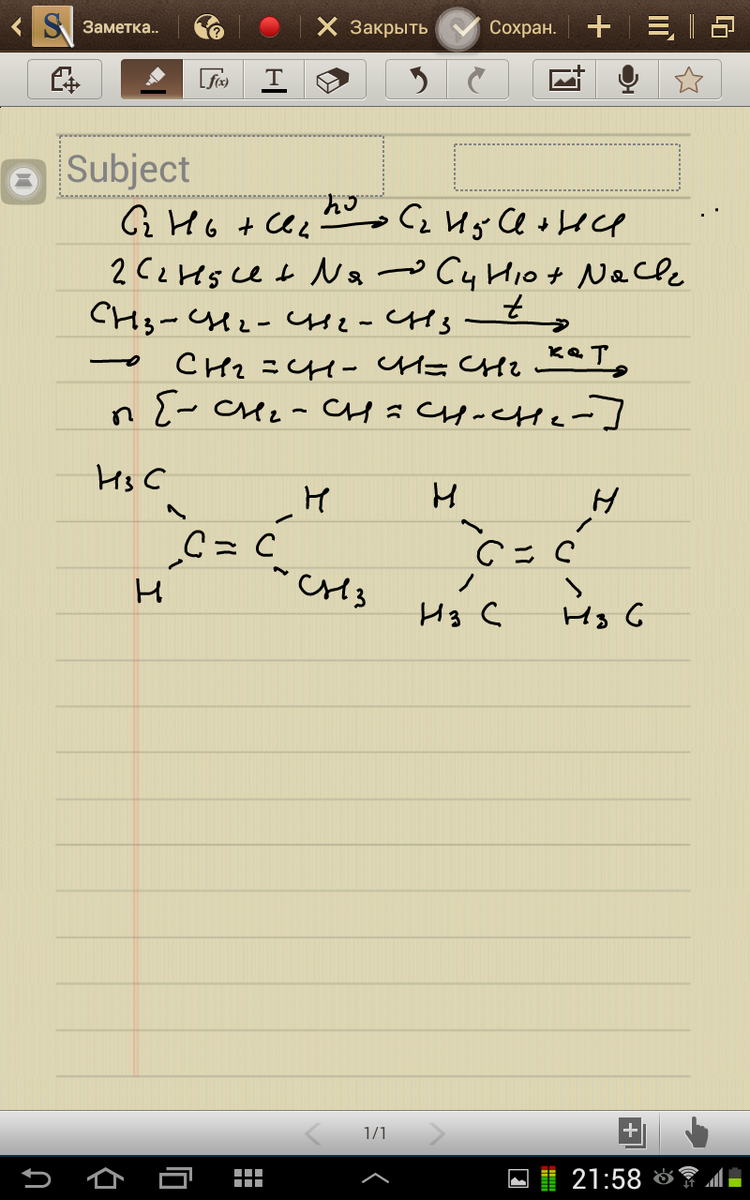 Заметка.. Закрыть Сохран.
f(x) T
Subject
C2H6 + Cl2 hν→ C2H5Cl + HCl
2C2H5Cl + Na → C4H10 + NaCl2
CH3-CH2-CH2-CH3 t→
→ CH2=CH-CH=CH2 кат→
n [-CH2-CH=CH-CH2-]
H3C H H H
C=C C=C
H CH3 H3C H3C
1/1
21:58